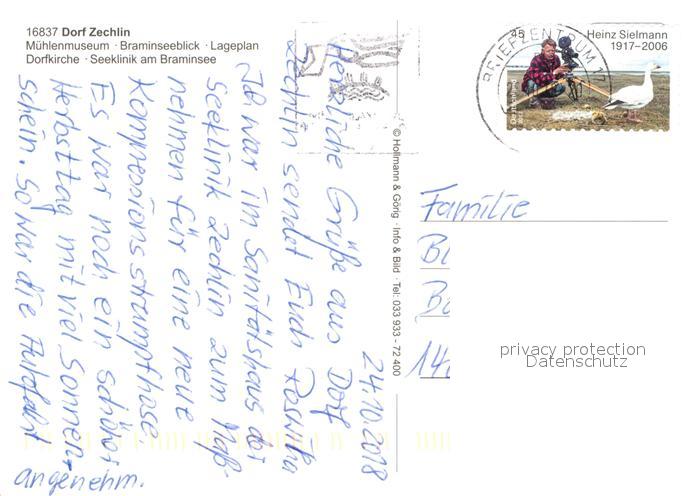 16837 Dorf Zechlin
Mühlenmuseum · Braminseeblick · Lageplan
Dorfkirche · Seeklinik am Braminsee
24.10.2018
Herzliche Grüße aus Dorf
Zechlin sendet Euch Roswitha
Ich war im Sanitätshaus der
Seeklinik Zechlin zum Maß-
nehmen für eine neue
Kompressionsstrumpfhose
Es war noch ein schöner
Herbsttag mit viel Sonnen-
schein. So war die Autofahrt
angenehm.
© Hollmann & Görig · Info & Bild · Tel: 033 933 - 72 400
BRIEFZENTRUM 1
45
Heinz Sielmann
1917–2006
Deutschland
Familie
14
privacy protection
Datenschutz